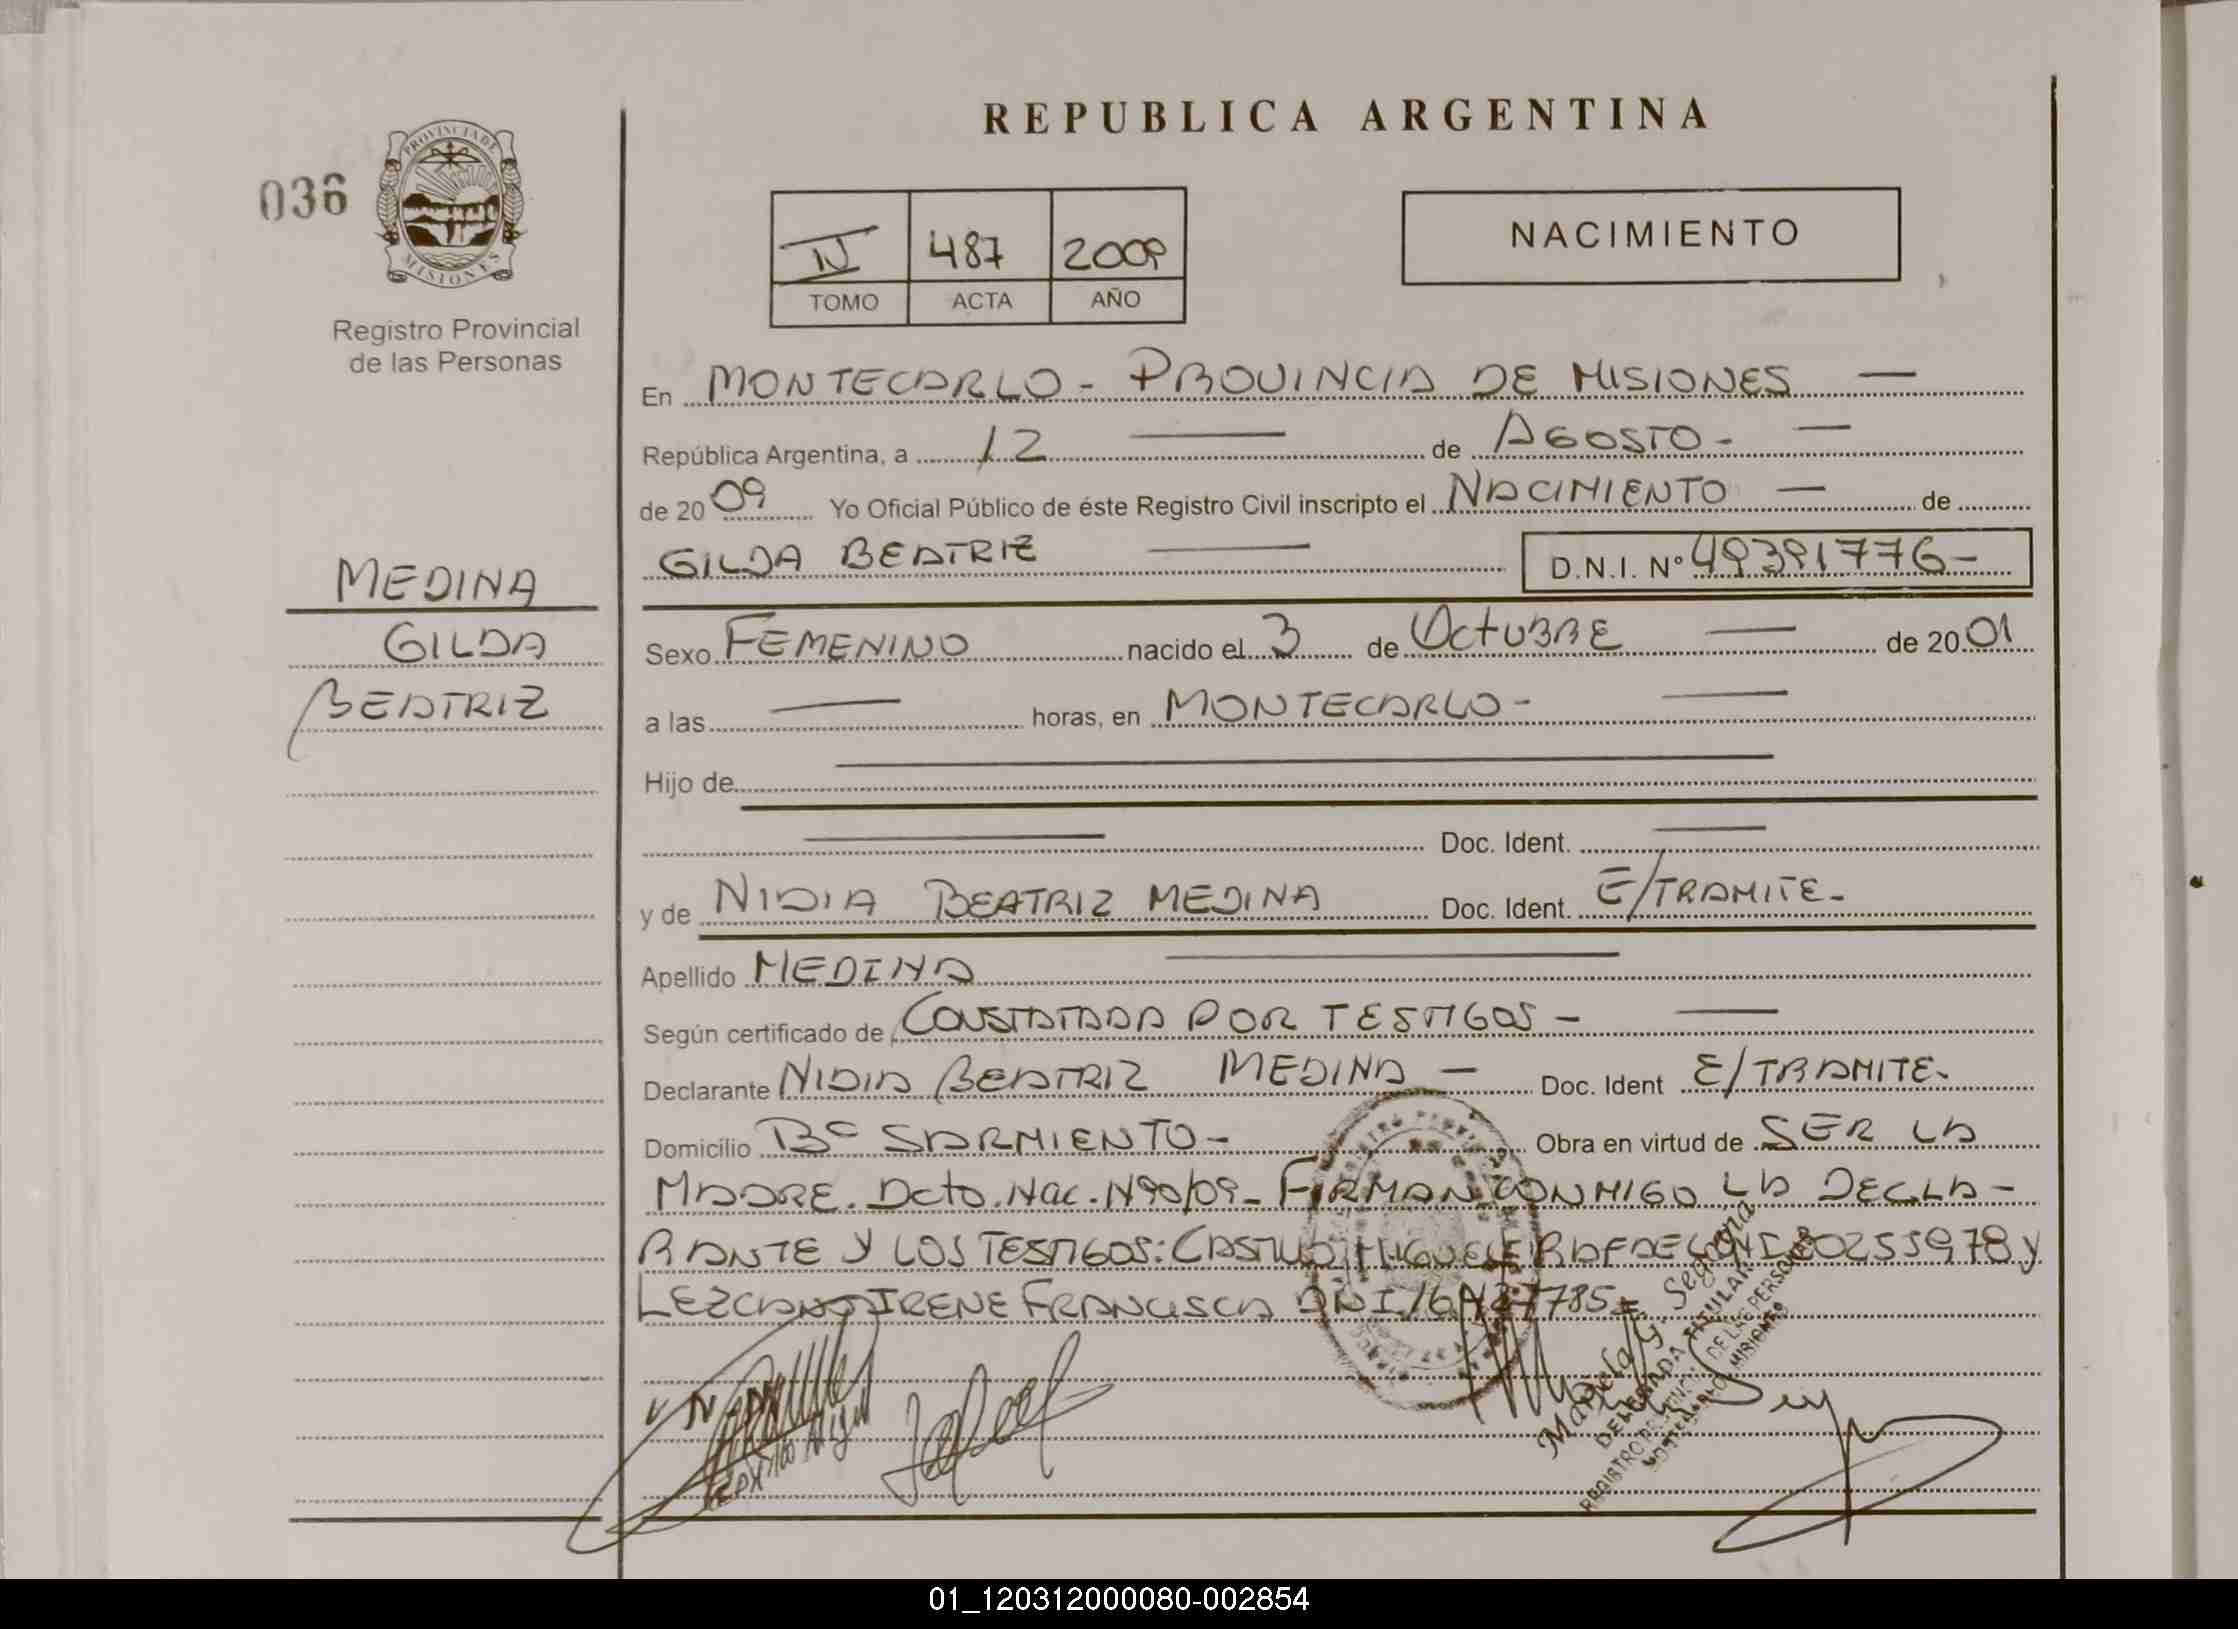 REPUBLICA ARGENTINA
036
PROVINCIA DE
MISIONES
Registro Provincial
de las Personas
IV 487 2009
TOMO ACTA AÑO
NACIMIENTO
En MONTECARLO - PROVINCIA DE MISIONES —
República Argentina, a 12 — de AGOSTO - —
de 2009 Yo Oficial Público de éste Registro Civil inscripto el NACIMIENTO — de
GILDA BEATRIZ — D.N.I. Nº 49391776-
MEDINA
GILDA
BEATRIZ
Sexo FEMENINO nacido el 3 de OCTUBRE — de 2001
a las — horas, en MONTECARLO - —
Hijo de —
— Doc. Ident. —
y de NIDIA BEATRIZ MEDINA Doc. Ident. E/TRAMITE-
Apellido MEDINA —
Según certificado de CONSTATADA POR TESTIGOS - —
Declarante NIDIA BEATRIZ MEDINA — Doc. Ident E/TRAMITE-
Domicilio Bº SARMIENTO - Obra en virtud de SER LA
MADRE. Dcto. Nac. N90/09- FIRMAN CONMIGO LA DECLA-
RANTE Y LOS TESTIGOS: CASTILLO MIGUEL RAFAEL DNI 80255978 y
LEZCANO IRENE FRANCISCA DNI
Mariela Y. Segovia
DELEGADA TITULAR
REGISTRO PROVINCIAL DE LAS PERSONAS
MONTECARLO MISIONES
01_120312000080-002854